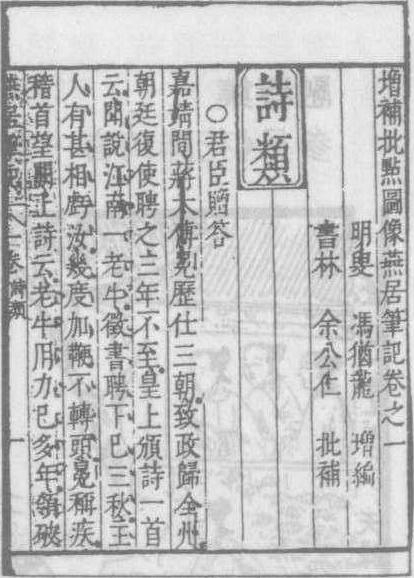 增補批點圖像燕居筆記卷之一
明叟 馮猶龍 增編
書林 余公仁 批補
詩類
○君臣贈答
嘉靖間蔣太傅冕歷仕三朝致政歸全州
朝廷復使聘之三年不至皇上頒詩一首
云聞說江南一老牛徵書聘下已三秋主
人有甚相虧汝幾度加鞭不轉頭冕稱疾
稽首望闕上詩云老牛用力已多年領破
燕居筆記 卷 詩類 一